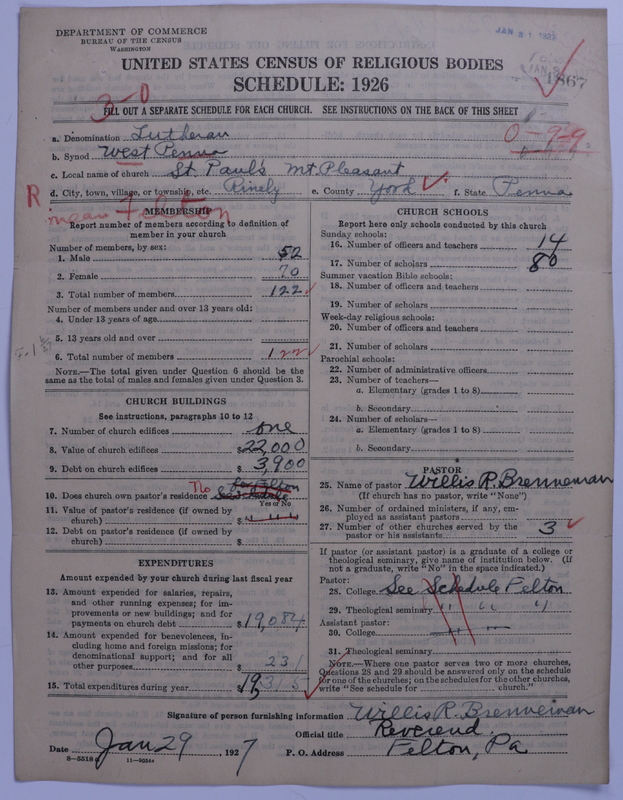 DEPARTMENT OF COMMERCE
BUREAU OF THE CENSUS
WASHINGTON
UNITED STATES CENSUS OF RELIGIOUS BODIES
SCHEDULE: 1926
1867
3-0
FILL OUT A SEPARATE SCHEDULE FOR EACH CHURCH. SEE INSTRUCTIONS ON THE BACK OF THIS SHEET
a. Denomination Lutheran
0-9-9
b. Synod West Penna
c. Local name of church St. Paul's Mt. Pleasant
R d. City, town, village, or township, etc. Rinely e. County York f. State Penna
near Felton
MEMBERSHIP
Report number of members according to definition of
member in your church
Number of members, by sex:
1. Male 52
2. Female 70
3. Total number of members 122
Number of members under and over 13 years old:
4. Under 13 years of age
5. 13 years old and over
6. Total number of members 122
NOTE.—The total given under Question 6 should be
same as the total of males and females given under Question 3.
CHURCH BUILDINGS
See instructions, paragraphs 10 to 12
7. Number of church edifices one
8. Value of church edifices $22,000
9. Debt on church edifices $3,900
10. Does church own pastor's residence No See Schedule for Felton
Yes or No
11. Value of pastor's residence (if owned by
church) $
12. Debt on pastor's residence (if owned by
church) $
EXPENDITURES
Amount expended by your church during last fiscal year
13. Amount expended for salaries, repairs,
and other running expenses; for im-
provements or new buildings; and for
payments on church debt $19,084
14. Amount expended for benevolences, in-
cluding home and foreign missions; for
denominational support; and for all
other purposes $231
15. Total expenditures during year $19,315
CHURCH SCHOOLS
Report here only schools conducted by this church
Sunday schools:
16. Number of officers and teachers 14
17. Number of scholars 80
Summer vacation Bible schools:
18. Number of officers and teachers
19. Number of scholars
Week-day religious schools:
20. Number of officers and teachers
21. Number of scholars
Parochial schools:
22. Number of administrative officers
23. Number of teachers—
a. Elementary (grades 1 to 8)
b. Secondary
24. Number of scholars—
a. Elementary (grades 1 to 8)
b. Secondary
PASTOR
25. Name of pastor Willis R. Brenneman
(If church has no pastor, write "None")
26. Number of ordained ministers, if any, em-
ployed as assistant pastors
27. Number of other churches served by the
pastor or his assistants 3
If pastor (or assistant pastor) is a graduate of a college or
theological seminary, give name of institution below. (If
not a graduate, write "No" in the space indicated.)
Pastor:
28. College See Schedule Felton
29. Theological seminary " " "
Assistant pastor:
30. College
31. Theological seminary
NOTE.—Where one pastor serves two or more churches,
Questions 28 and 29 should be answered only on the schedule
for one of the churches; on the schedules for the other churches,
write "See schedule for church."
Signature of person furnishing information Willis R. Brenneman
Official title Reverend
Date Jan 29, 1927 P. O. Address Felton, Pa